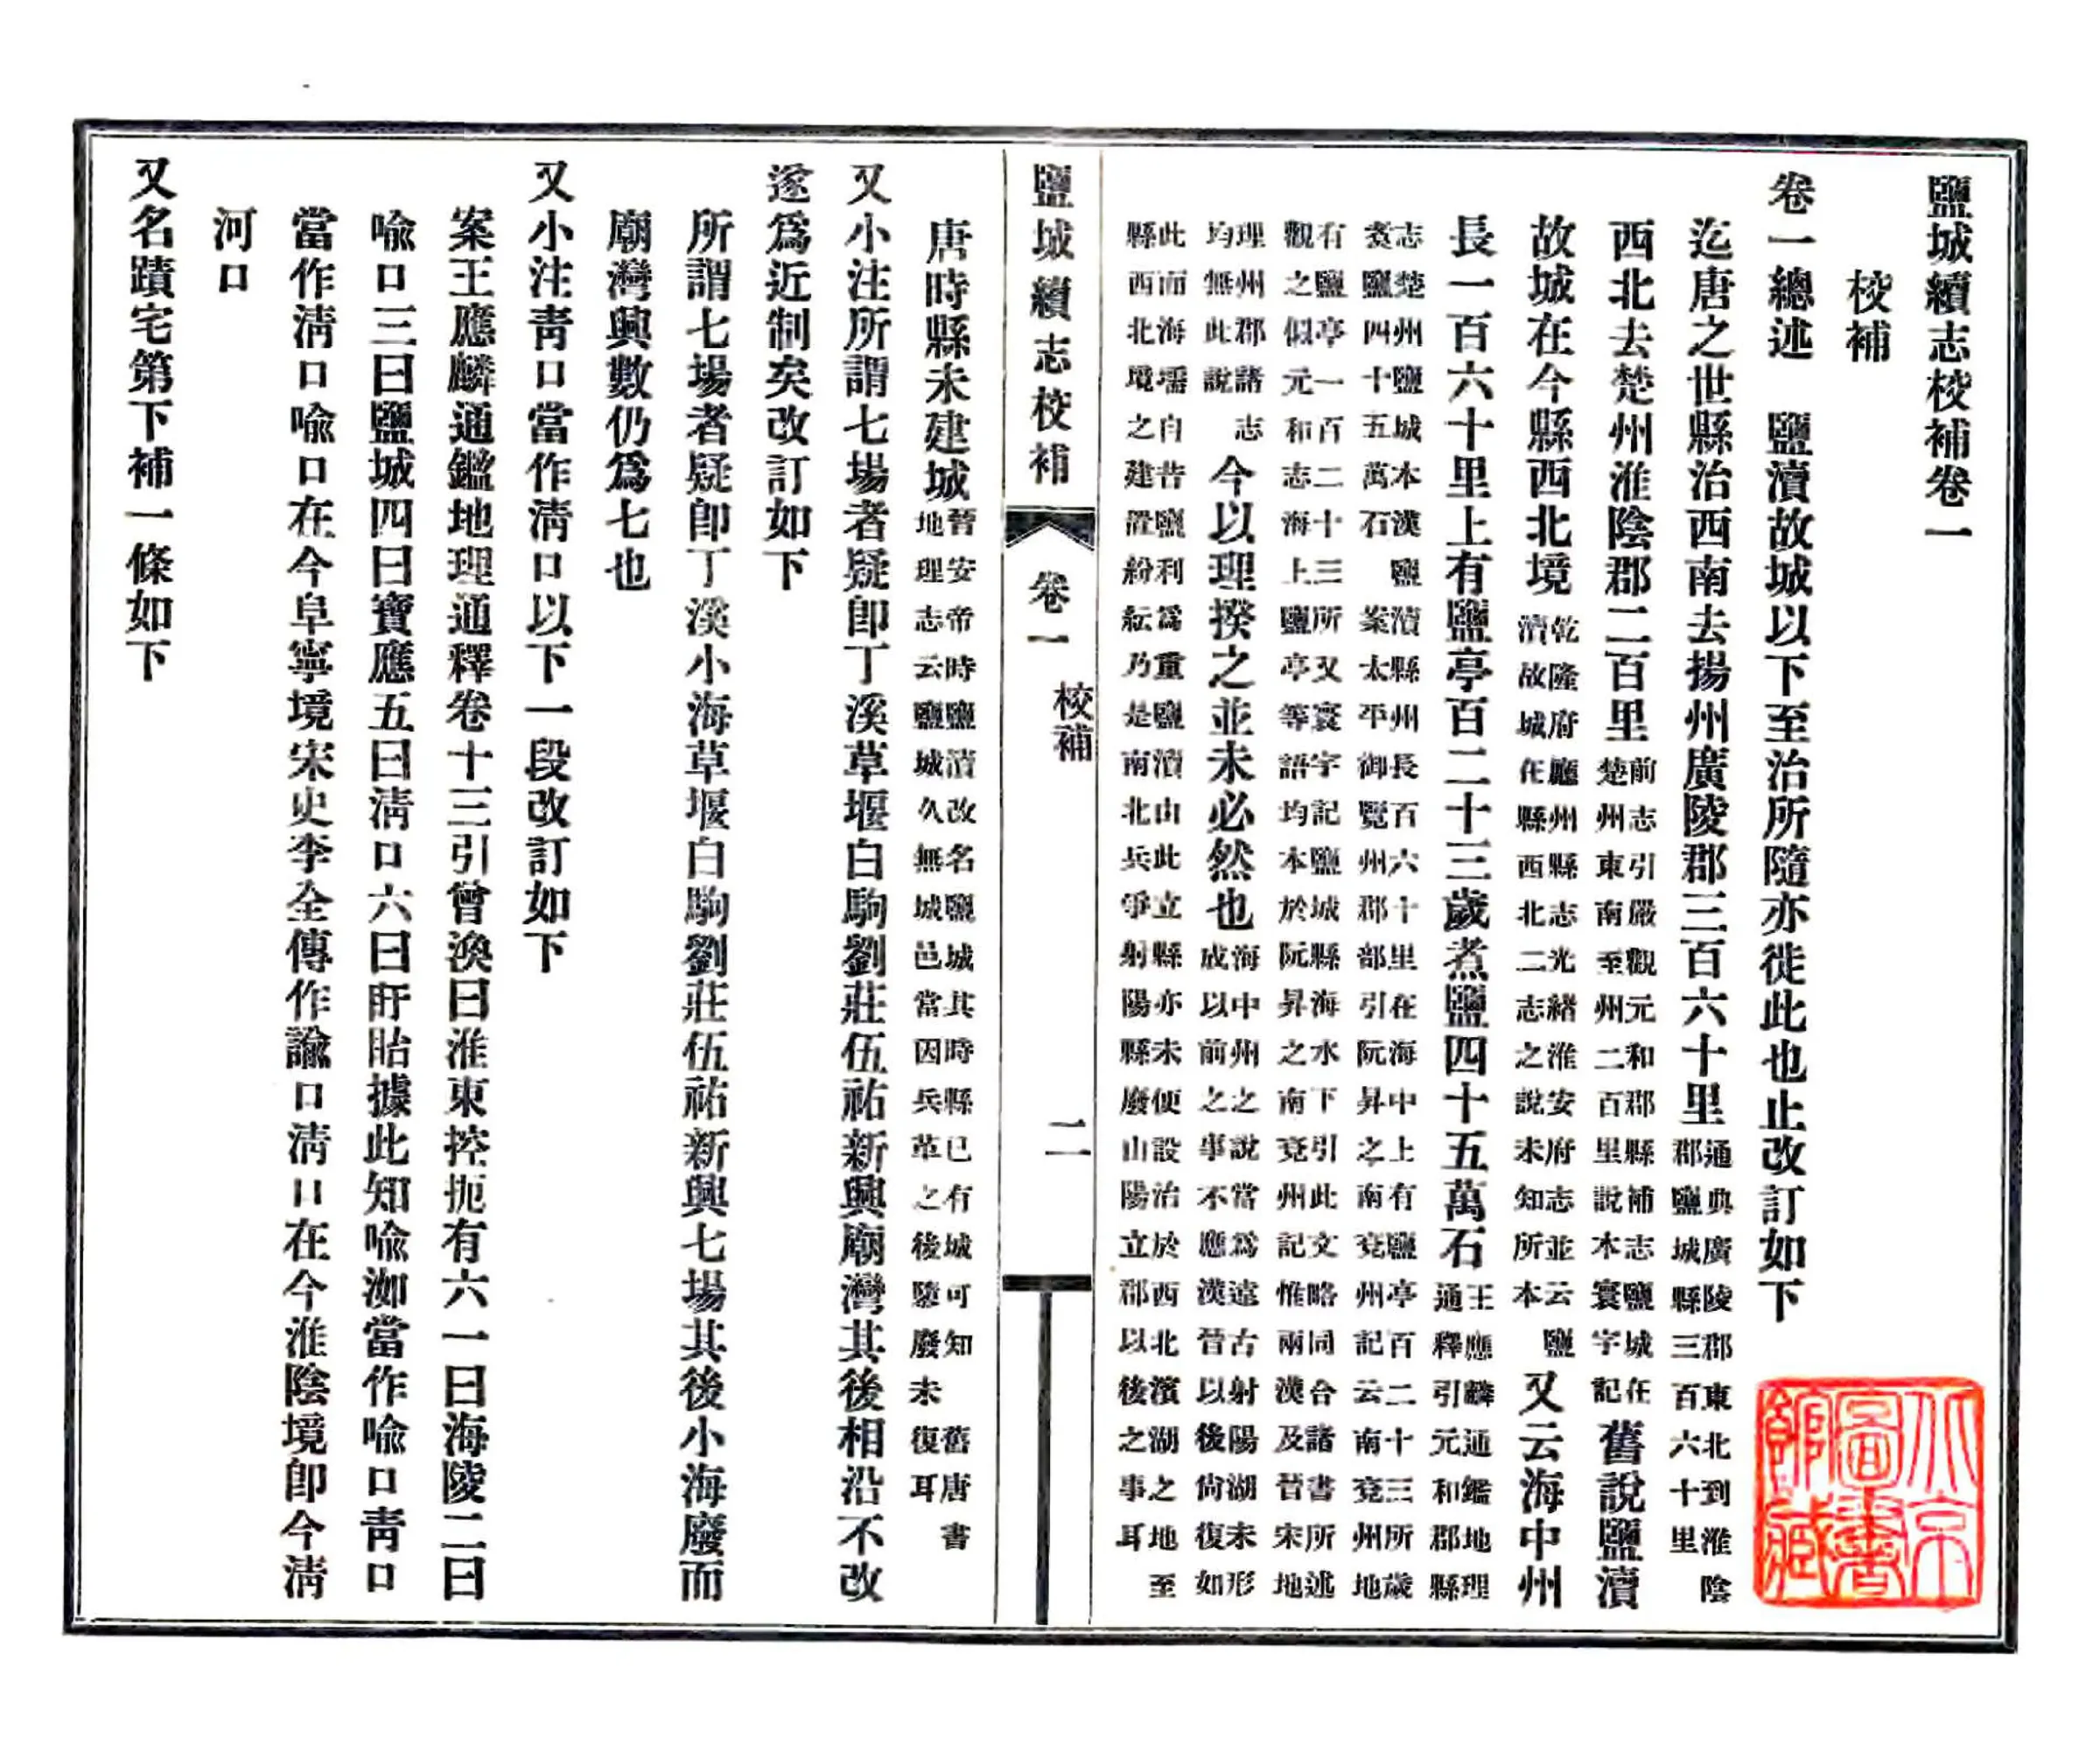 鹽城續志校補卷一
校補
卷一總述　鹽瀆故城以下至治所隨亦徙此也止改訂如下
迄唐之世縣治西南去揚州廣陵郡三百六十里通典廣陵郡東北到淮陰郡鹽城縣三百六十里
西北去楚州淮陰郡二百里前志引嚴觀元和郡縣補志鹽城在楚州東南至州二百里說本寰宇記舊說鹽瀆
故城在今縣西北境乾隆府廳州縣志光緒淮安府志並云鹽瀆故城在縣西北二志之說未知所本又云海中州
長一百六十里上有鹽亭百二十三歲煮鹽四十五萬石王應麟通鑑地理通釋引元和郡縣
志楚州鹽城本漢鹽瀆縣州長百六十里在海中上有鹽亭百二十三所歲煑鹽四十五萬石　案太平御覽州郡部引阮昇之南兗州記云南兗州地
有鹽亭一百二十三所又寰宇記鹽城縣海水下引此文略同合諸書所述觀之似元和志海上鹽亭等語均本於阮昇之南兗州記惟兩漢及晉宋地
理州郡諸志均無此說今以理揆之並未必然也海中州之說當爲遠古射陽湖未形成以前之事不應漢晉以後尙復如
此而海壖自昔鹽利爲重鹽瀆由此立縣亦未便設治於西北濱湖之地至縣西北境之建置紛紜乃是南北兵爭射陽縣廢山陽立郡以後之事耳
鹽城續志校補　卷一　校補　二
唐時縣未建城晉安帝時鹽瀆改名鹽城其時縣已有城可知　舊唐書地理志云鹽城久無城邑當因兵革之後隳廢未復耳
又小注所謂七場者疑卽丁溪草堰白駒劉莊伍祐新興廟灣其後相沿不改
遂爲近制矣改訂如下
所謂七場者疑卽丁溪小海草堰白駒劉莊伍祐新興七場其後小海廢而
廟灣興數仍爲七也
又小注靑口當作淸口以下一段改訂如下
案王應麟通鑑地理通釋卷十三引曾渙曰淮東控扼有六一曰海陵二曰
喩口三曰鹽城四曰寶應五曰淸口六曰盱眙據此知喩洳當作喩口靑口
當作淸口喩口在今阜寧境宋史李全傳作諭口淸口在今淮陰境卽今淸
河口
又名蹟宅第下補一條如下
北京圖書館藏